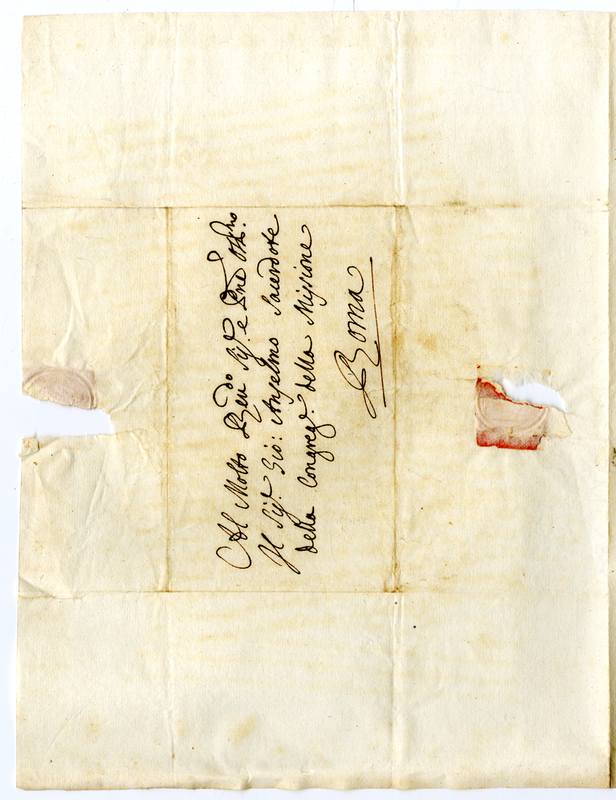 Al Molto Rev.do Sig.r e Pne Oss.mo
Il Sig.r Gio: Anselmo Sacerdote
della Congreg.e della Missione
Roma